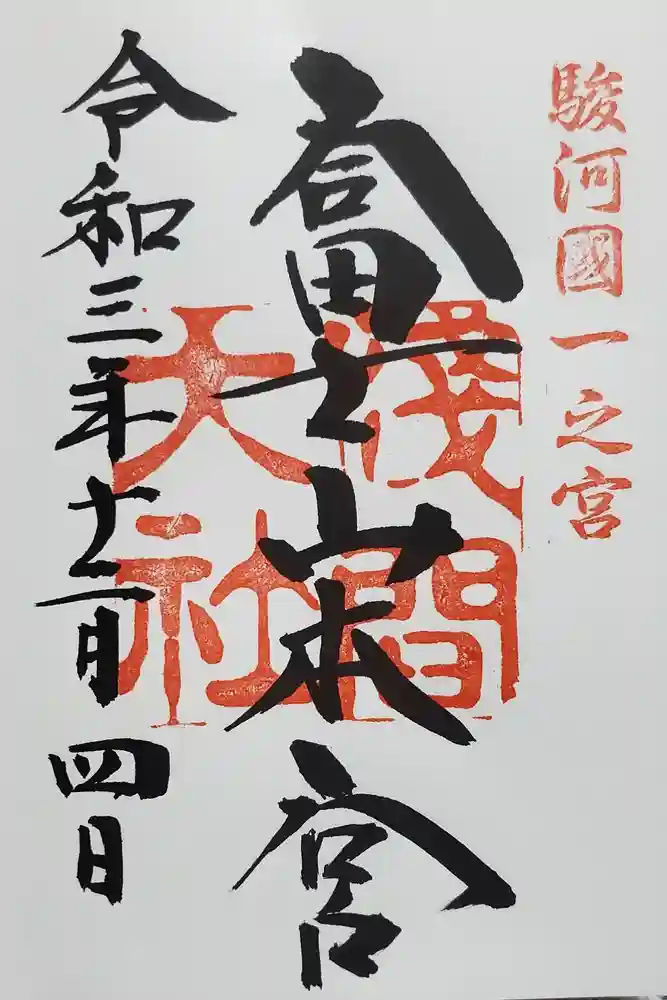 駿河國一之宮
富士山本宮
淺間
大社
令和三年十二月四日